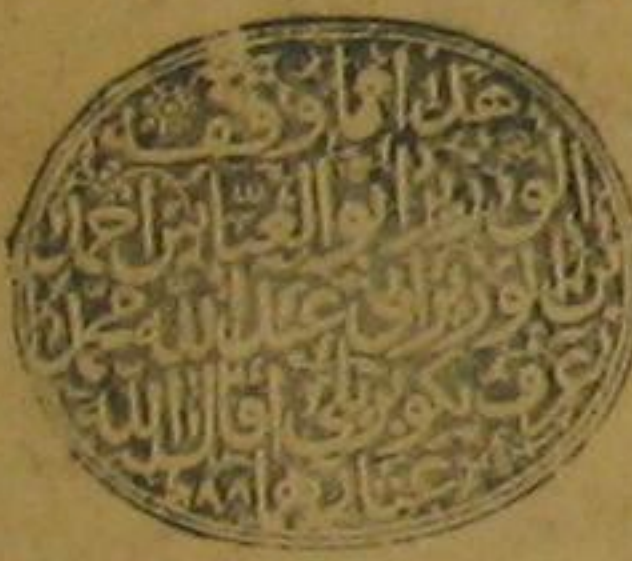 هذا مما وقف
الوزير ابو العباس احمد
بن الوزير ابي عبد الله محمد
عرف بكوبريلي اقال الله
عثارهما ٨٨